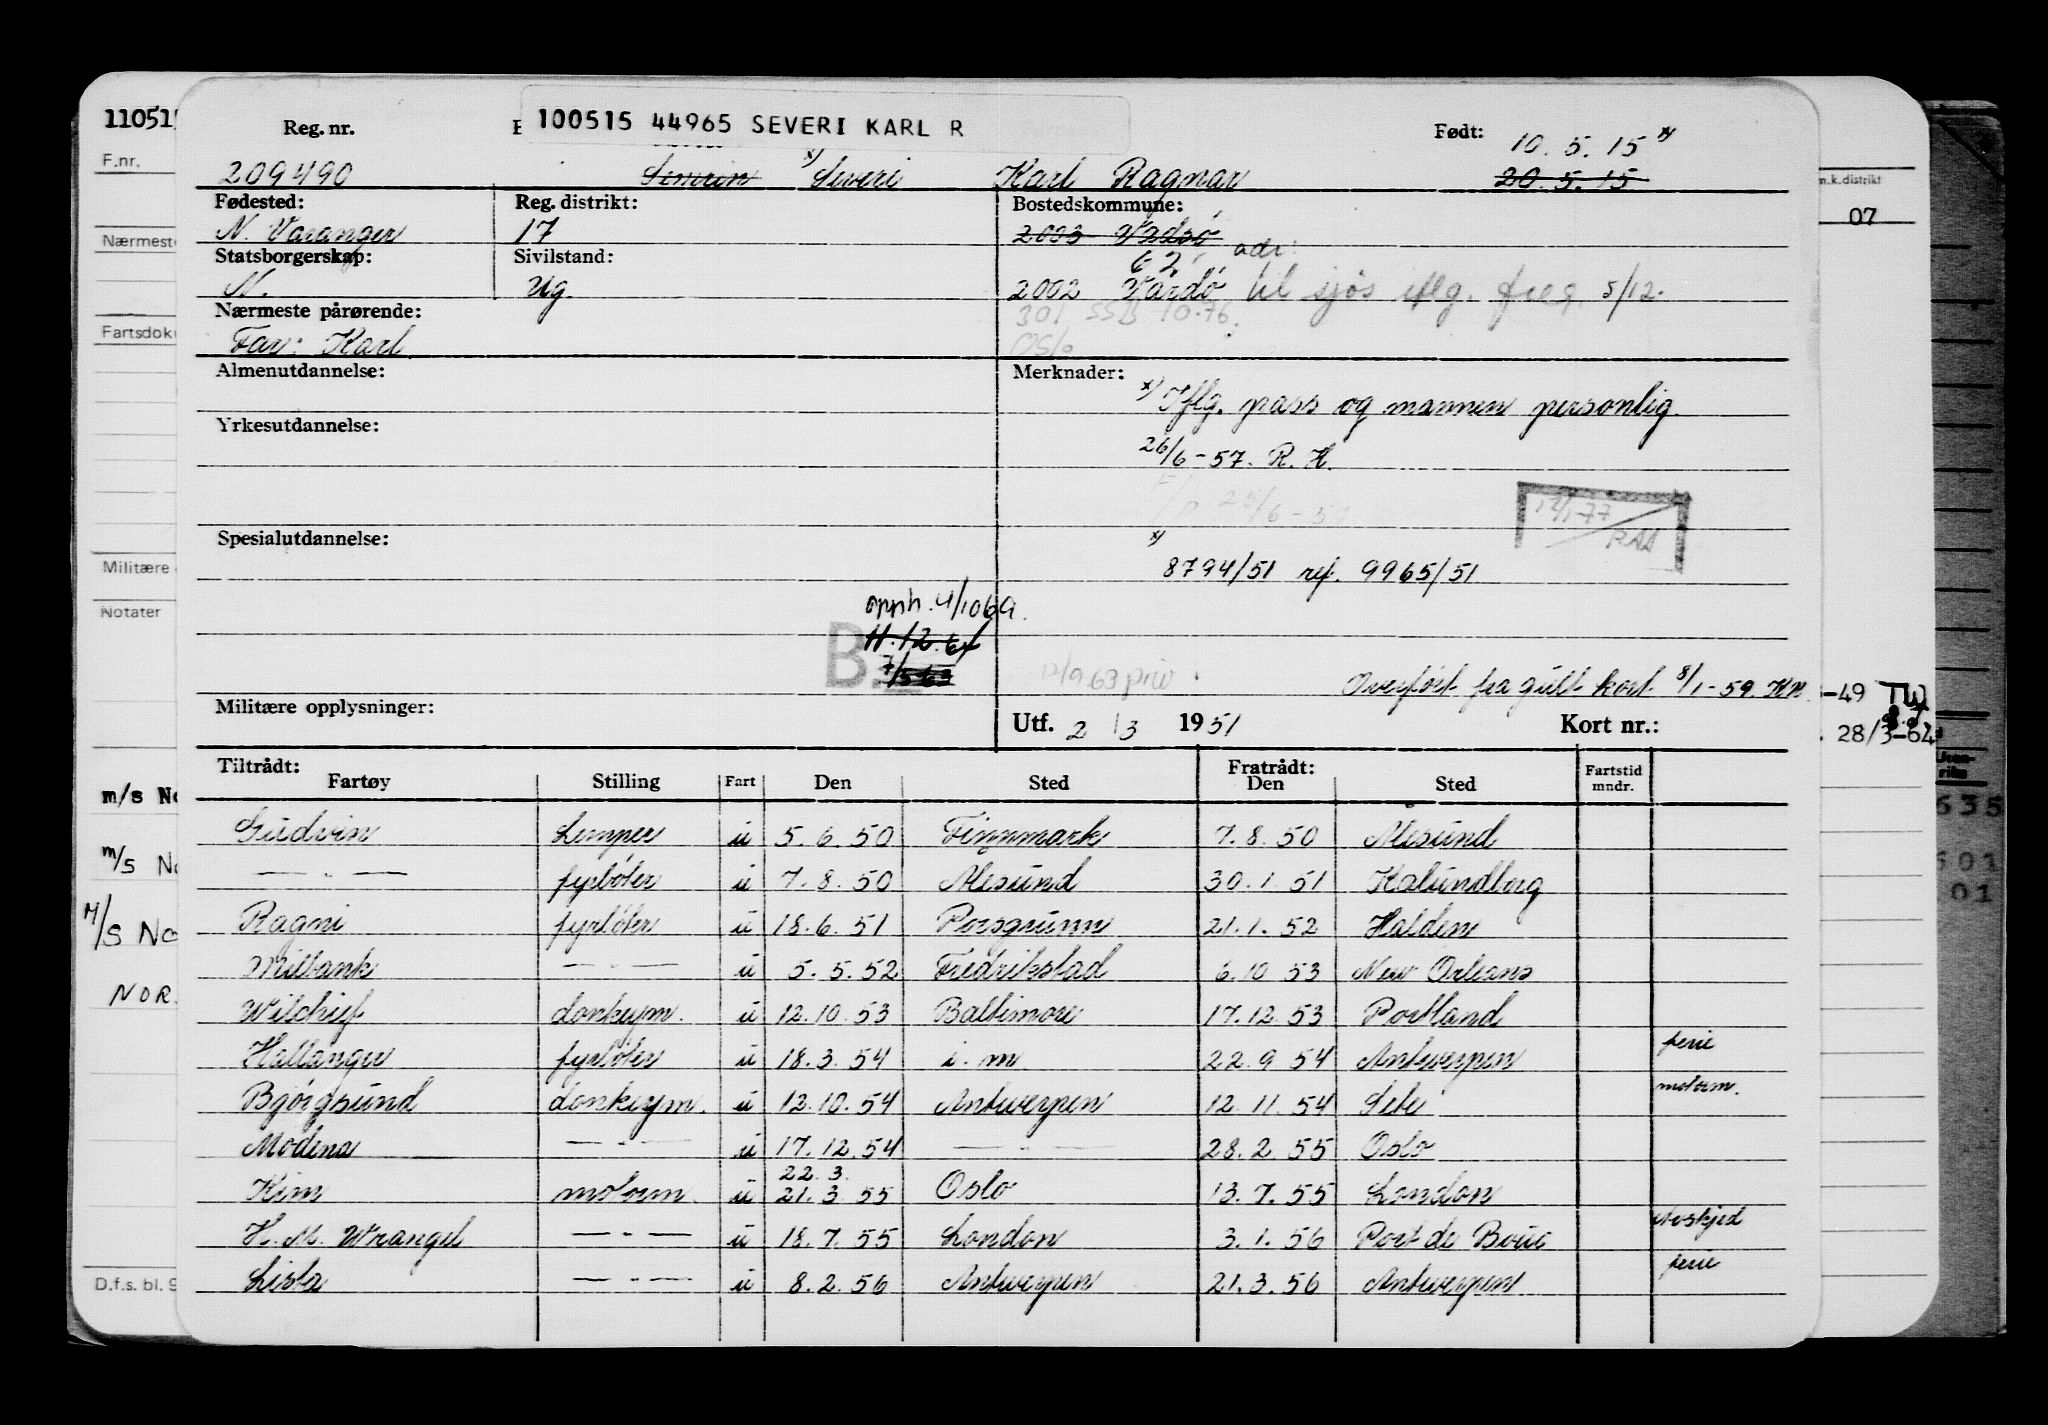 11051
F.nr.
Nærmest
Fartsdok
Militære
Notater
m/s No
m/s No
M/S No
NOR.
D.f.s. bl. 9
100515 44965 SEVERI KARL R
Reg. nr. Født: 10. 5. 15 x)
209490 x) Severi Karl Ragnar 20. 5. 15
Fødested: Reg. distrikt: Bostedskommune:
N. Varanger 17 2003 Vadsø
Statsborgerskap: Sivilstand: 62, adr:
N. Ug. 2002 Vardø til sjøs iflg. freg. 5/12.
Nærmeste pårørende: 301 SSB 10.76
Far: Karl Oslo
Almenutdannelse: Merknader:
x) Iflg. pass og mannen personlig
Yrkesutdannelse:
26/6-57. R. H.
12/1-77
RAA
Spesialutdannelse: x)
8794/51 ref. 9965/51
opph. 4/10 69.
B. 11.12.64
7/5 63
12/9.63 priv
Overført fra gult kort 8/1-59. KN
Militære opplysninger: Utf. 2/3 1951 Kort nr.:
Tiltrådt: Fratrådt:
Fartøy Stilling Fart Den Sted Den Sted Fartstid mndr.
Gudvin Lemper u 5. 6. 50 Finnmark 7. 8. 50 Ålesund
— „ — fyrbøter u 7. 8. 50 Ålesund 30. 1 51 Kalundborg
Ragni fyrbøter u 18. 6. 51 Porsgrunn 21. 1. 52 Halden
Milbank — „ — u 5. 5. 52 Fredrikstad 6. 10 53 New Orleans
Wilchief donkeym. u 12. 10. 53 Baltimore 17. 12. 53 Portland
Hallanger fyrbøter u 18. 3. 54 i. m 22. 9. 54 Antwerpen ferie
Bjørgsund donkeym. u 12. 10. 54 Antwerpen 12. 11. 54 Sete motorm.
Modena — „ — u 17. 12. 54 — „ — 28. 2. 55 Oslo
22. 3.
Kim motorm. u 21. 3. 55 Oslo 13. 7. 55 London
H. M. Wrangell — „ — u 18. 7. 55 London 3. 1. 56 Port de Bouc Avskjed
Lista — „ — u 8. 2. 56 Antwerpen 21. 3. 56 Antwerpen ferie
m.k.distrikt
07
-49 TW
28/3-64
635
601
01